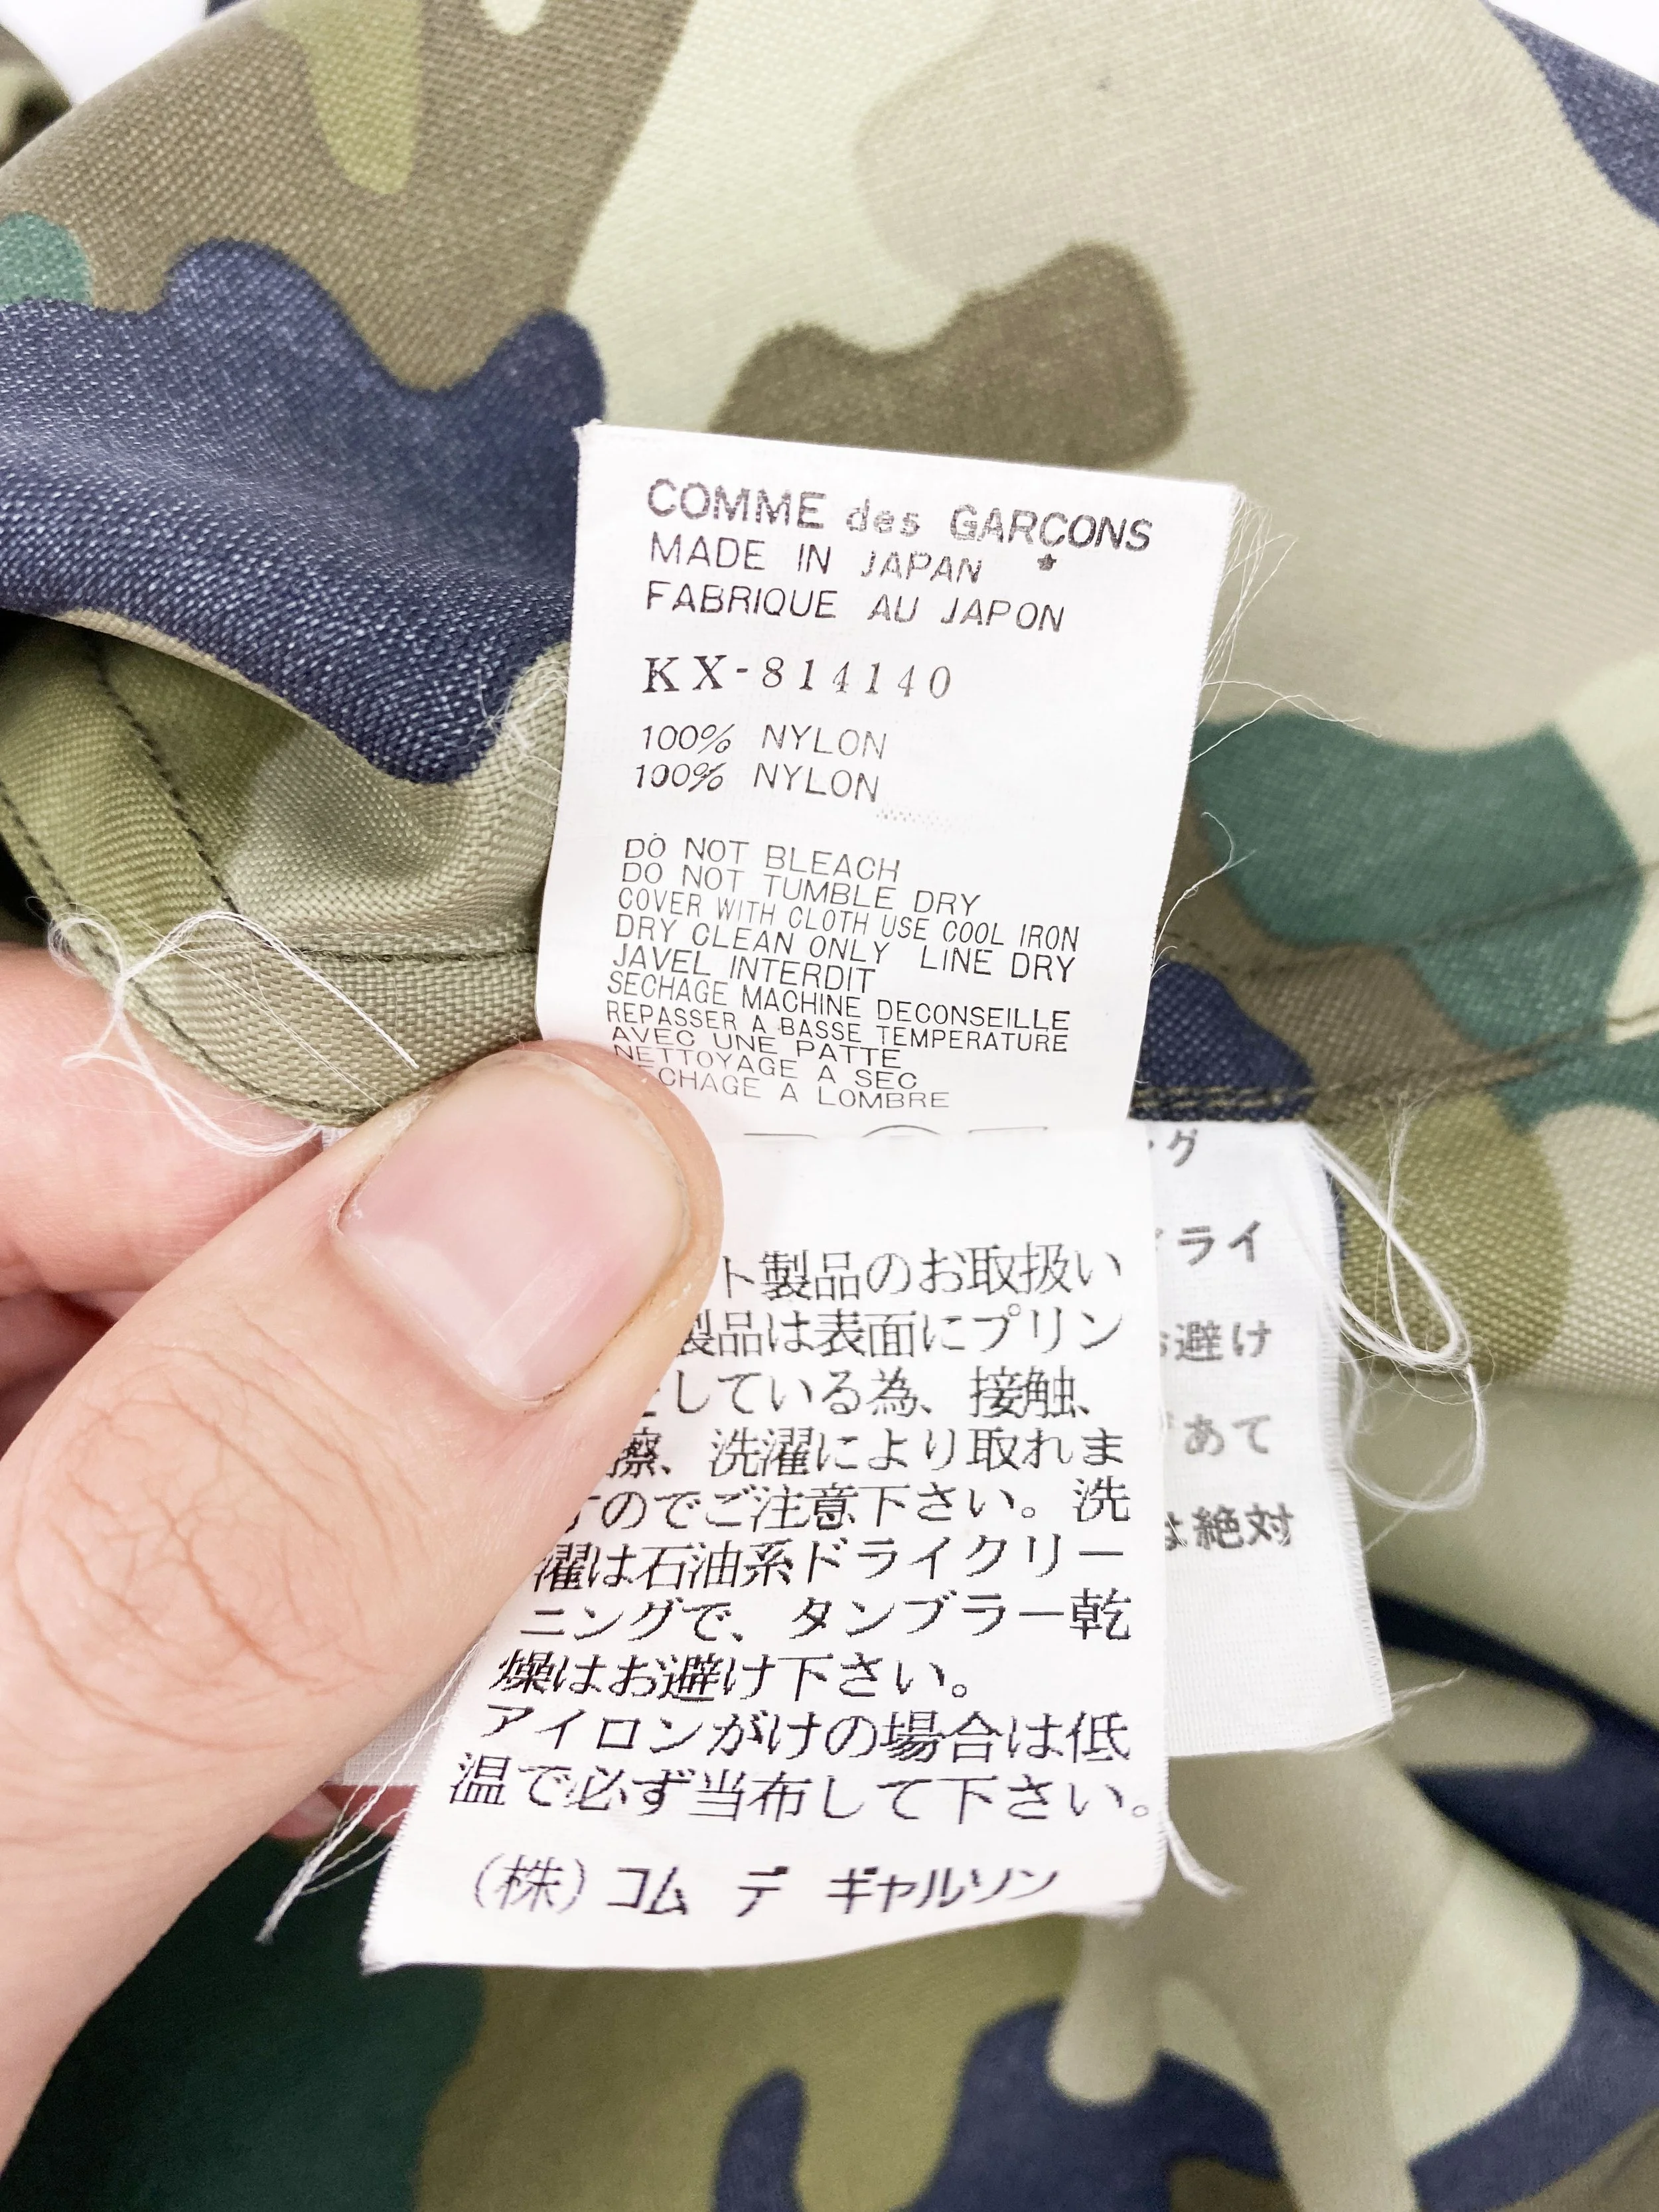 COMME des GARCONS
MADE IN JAPAN
FABRIQUE AU JAPON
KX-814140
100% NYLON
100% NYLON
DO NOT BLEACH
DO NOT TUMBLE DRY
COVER WITH CLOTH USE COOL IRON
DRY CLEAN ONLY LINE DRY
JAVEL INTERDIT
SECHAGE MACHINE DECONSEILLE
REPASSER A BASSE TEMPERATURE
AVEC UNE PATTE
NETTOYAGE A SEC
ECHAGE A LOMBRE
ト製品のお取扱い
製品は表面にプリン
としている為、接触、
擦、洗濯により取れま
すのでご注意下さい。洗
濯は石油系ドライクリー
ニングで、タンブラー乾
燥はお避け下さい。
アイロンがけの場合は低
温で必ず当布して下さい。
(株)コム デ ギャルソン
グ
ライ
避け
あて
は絶対